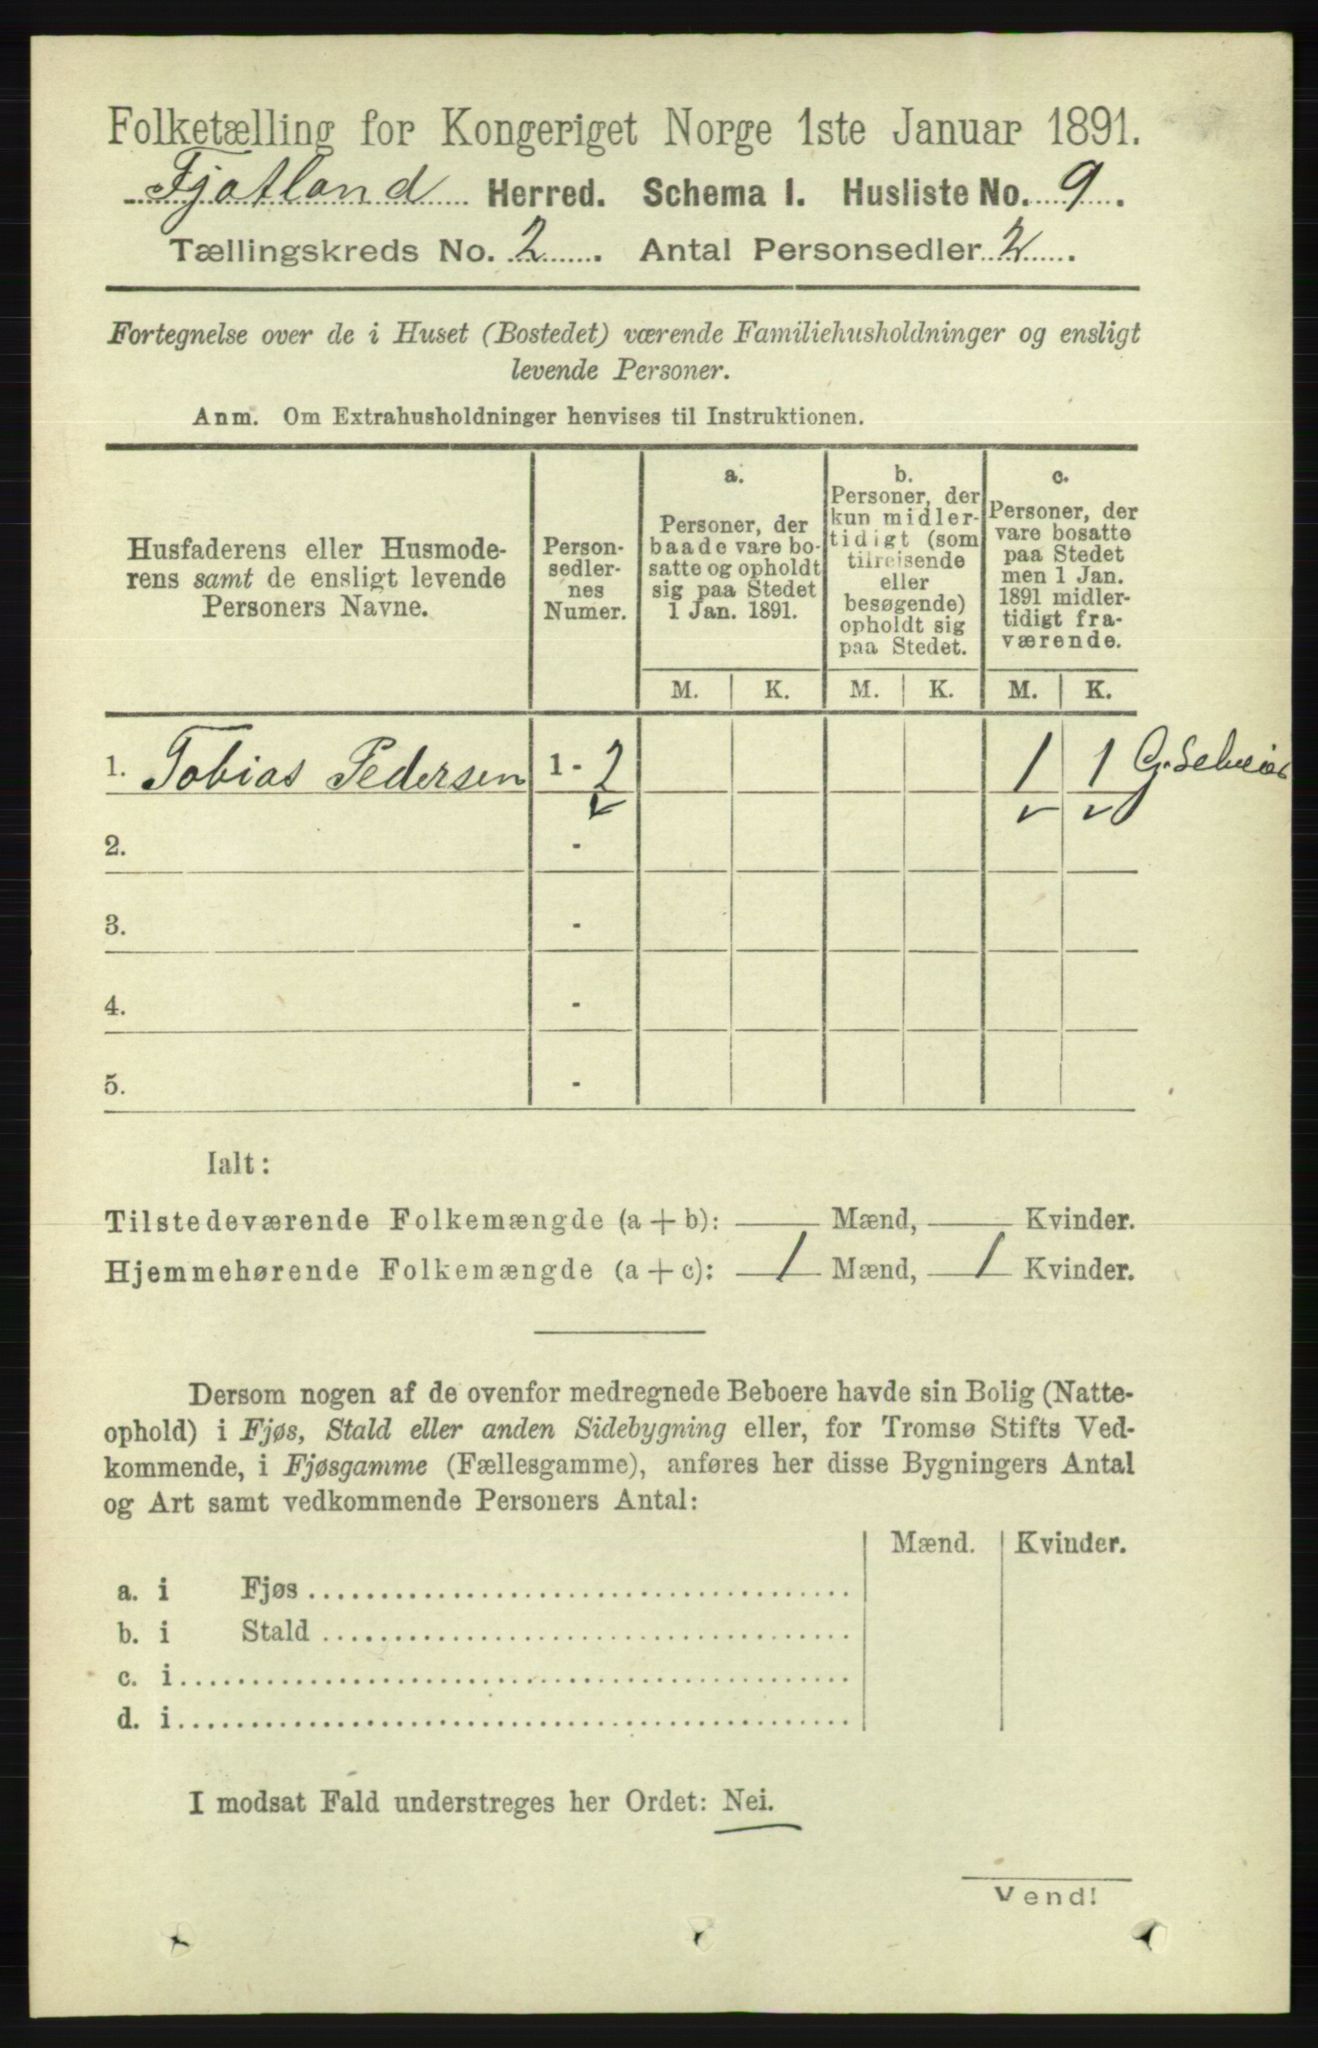 Folketælling for Kongeriget Norge 1ste Januar 1891.
Fjotland Herred. Schema I. Husliste No. 9.
Tællingskreds No. 2. Antal Personsedler 2.
Fortegnelse over de i Huset (Bostedet) værende Familiehusholdninger og ensligt
levende Personer.
Anm. Om Extrahusholdninger henvises til Instruktionen.
Husfaderens eller Husmode-
rens samt de ensligt levende
Personers Navne.
Person-
sedler-
nes
Numer.
a.
Personer, der
baade vare bo-
satte og opholdt
sig paa Stedet
1 Jan. 1891.
b.
Personer, der
kun midler-
tidigt (som
tilreisende
eller
besøgende)
opholdt sig
paa Stedet.
c.
Personer, der
vare bosatte
paa Stedet
men 1 Jan.
1891 midler-
tidigt fra-
værende.
M. K. M. K. M. K.
1. Tobias Pedersen 1 - 2 1 1
2. -
3. -
4. -
5. -
Ialt:
Tilstedeværende Folkemængde (a + b): — Mænd, — Kvinder.
Hjemmehørende Folkemængde (a + c): 1 Mænd, 1 Kvinder.
Dersom nogen af de ovenfor medregnede Beboere havde sin Bolig (Natte-
ophold) i Fjøs, Stald eller anden Sidebygning eller, for Tromsø Stifts Ved-
kommende, i Fjøsgamme (Fællesgamme), anføres her disse Bygningers Antal
og Art samt vedkommende Personers Antal:
Mænd. Kvinder.
a. i Fjøs
b. i Stald
c. i
d. i
I modsat Fald understreges her Ordet: Nei.
Vend!